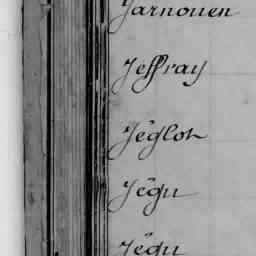 Jarnouen
Jeffray
Jéglot
Jégu
Jégu